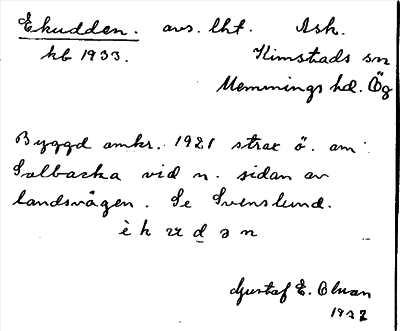 Ekudden. avs. lht. Ask.
kb 1933. Kimstads sn
Memmings hd. Ög
Byggd omkr. 1921 strax ö. om
Solbacka vid n. sidan av
landsvägen. Se Svenslund.
Gustaf E. Olsson